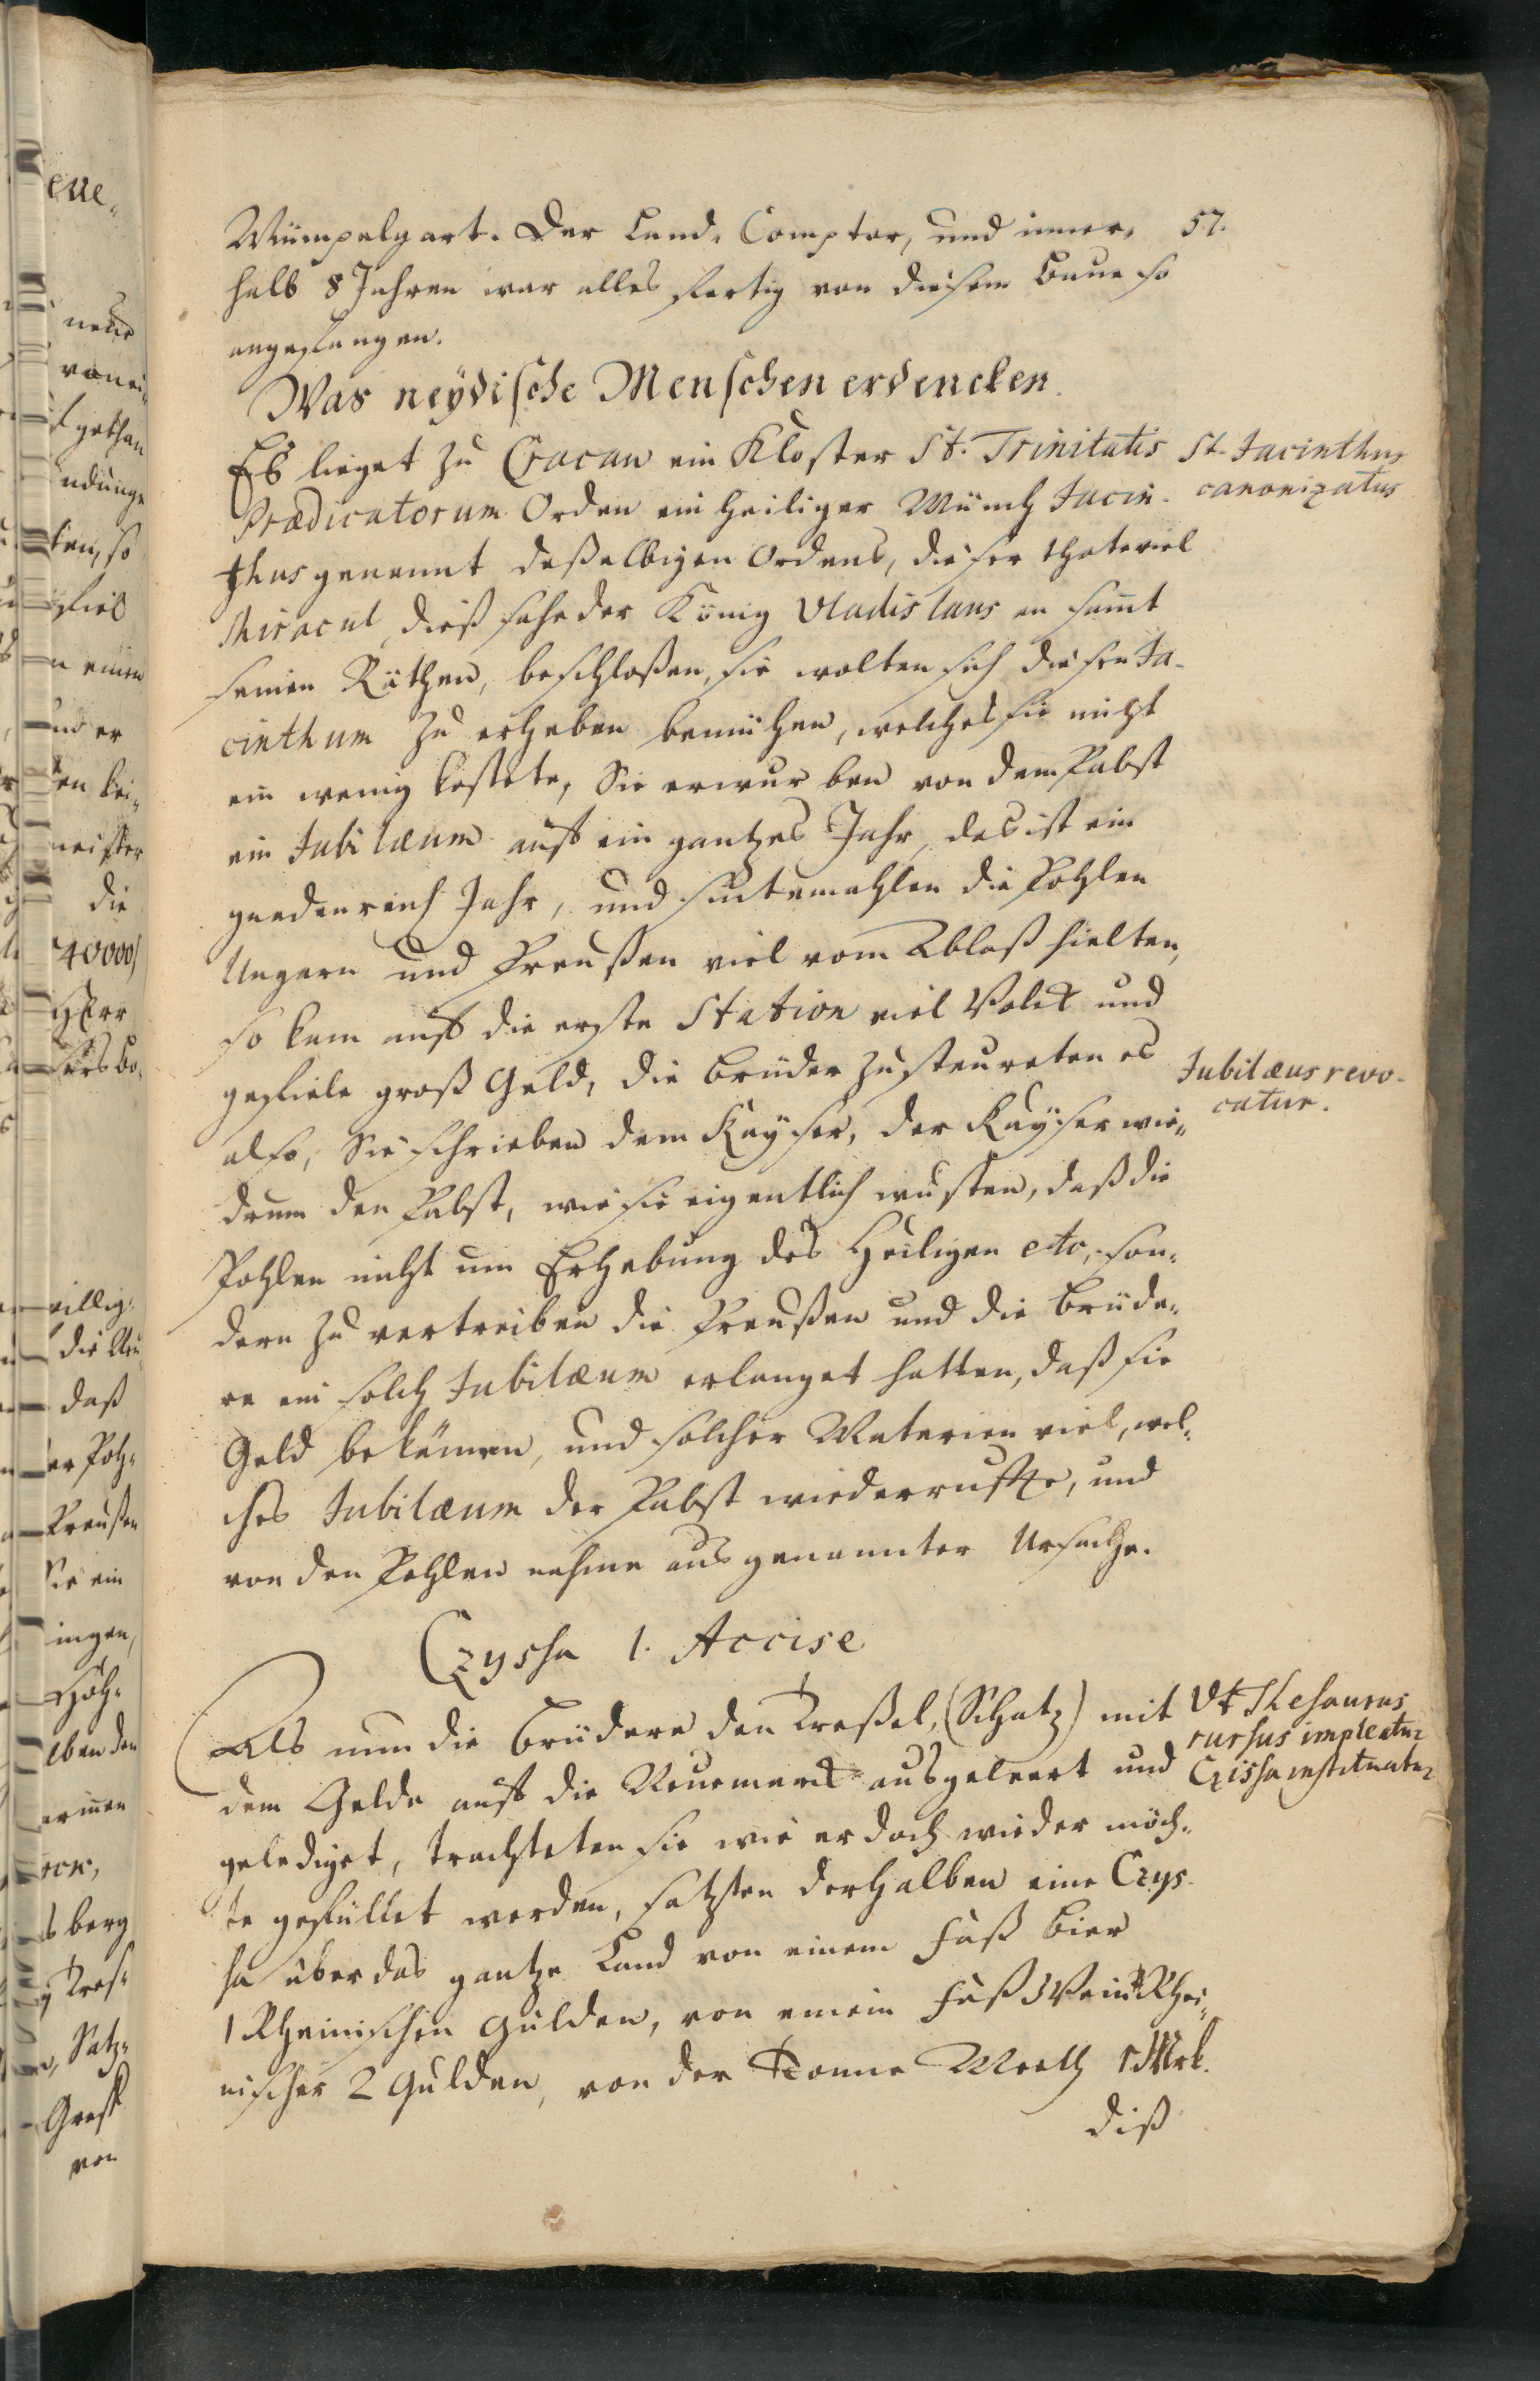 57.
Mümpelgart. Der Land, Comptor, und inner,
halb 8 Jahren war alles fertig von diesem Baue so
angefangen.
Was neÿdische Menschen erdencken.
Es lieget zu Cracau ein Kloster St. Trinitatis
Prædicatorum Orden ein heiliger Münch Jacin-
thus genannt deßelbigen Ordens, dieser thate viel
Miracul, dieß sahe der König Vladislaus an samt
seinen Räthen, beschloßen, sie wolten sich diesen Ja-
cinthum zu erheben bemühen, welches sie nicht
ein wenig kostete, Sie erwurben von dem Pabst
ein Jubilæum auff ein gantzes Jahr, das ist ein
gnadenreich Jahr, und sintemahlen die Pohlen
Ungern und Preußen viel vom Ablaß hielten,
so kam auff die erste Station viel Volck und
gefiele groß Geld, die Brüder zusteureten es
also, Sie schrieben dem Kaÿser, der Kaÿser wie-
drum den Pabst, wie sie eigentlich wusten, daß die
Pohlen nicht um Erhebung des Heiligen etc, son-
dern zu vertreiben die Preußen und die Brüde-
re ein solch Jubilæum erlanget hatten, daß sie
Geld bekämen, und solcher Materien viel, wel-
ches Jubilæum der Pabst wiederruffte, und
von den Pohlen nahme aus genannter Ursache.
St. Jacinthus
canonizatus
Jubilæus revo-
catur.
Czysha 1. Accise
Als nun die Brüdere den Treßel, (Schatz) mit
dem Gelde auff die Neuemarck ausgeleert und
geledigt, trachteten sie wie er doch wieder möch-
te gefüllet werden, satzten derhalben eine Czys-
ha über das gantze Land von einem Faß Bier
1 Rheinischen Gulden, von einem Faß Wein Rhei-
nischer 2 Gulden, von der Tonne Meeth 1 Mrk.
diß
Vt Thesaurus
rursus impleatur
Czissa instituatur